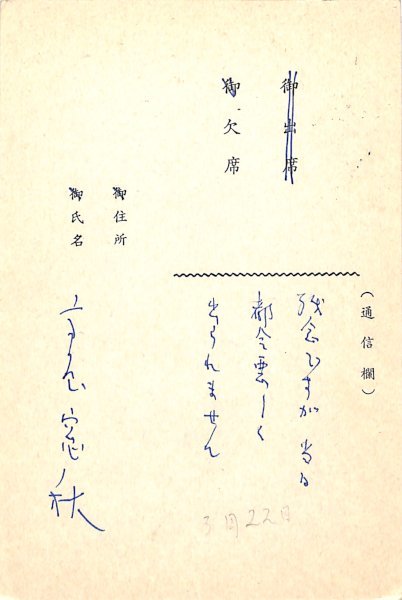 御出席
御欠席
御住所
御氏名
(通信欄)
残念ですが当日
都合悪しく
出られません
窓秋
3月22日